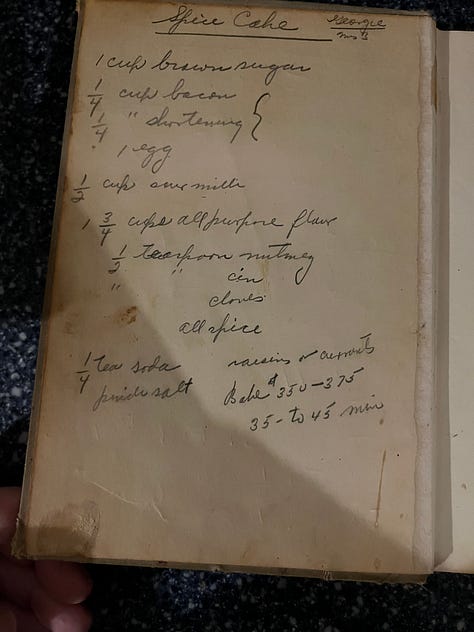 Spice Cake Georgie
Mrs B
1 cup brown sugar
1/4 cup bacon
1/4 " shortening }
1 egg
1/2 cup sour milk
1 3/4 cups all purpose flour
1/2 teaspoon nutmeg
" " cin
cloves
all spice
1/4 tea soda raisins or currants
pinch salt Bake 350-375
35-to 45 min